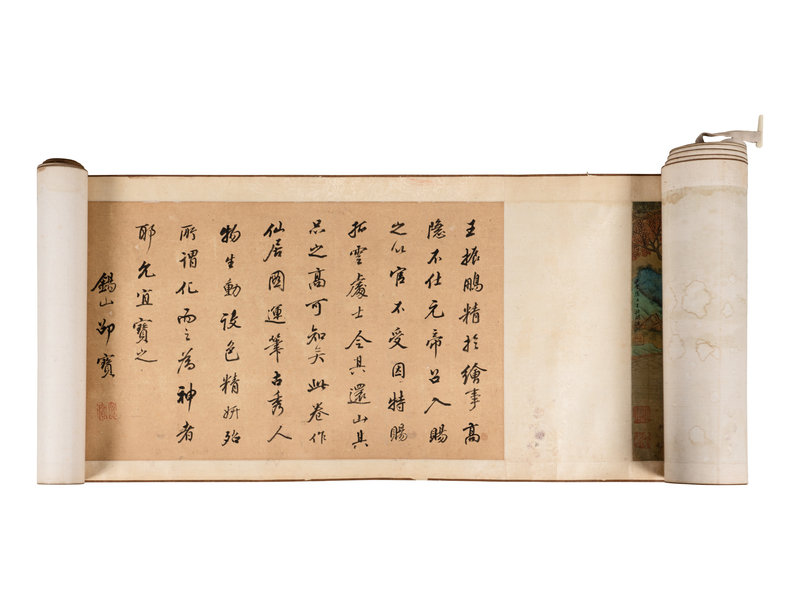 王振鵬精於繪事高
隱不仕元帝召入賜
之以官不受因特賜
孤雲處士令其還山其
品之高可知矣此卷作
仙居圖運筆古秀人
物生動設色精妍殆
所謂化而之為神者
耶允宜寶之
錫山邵寶